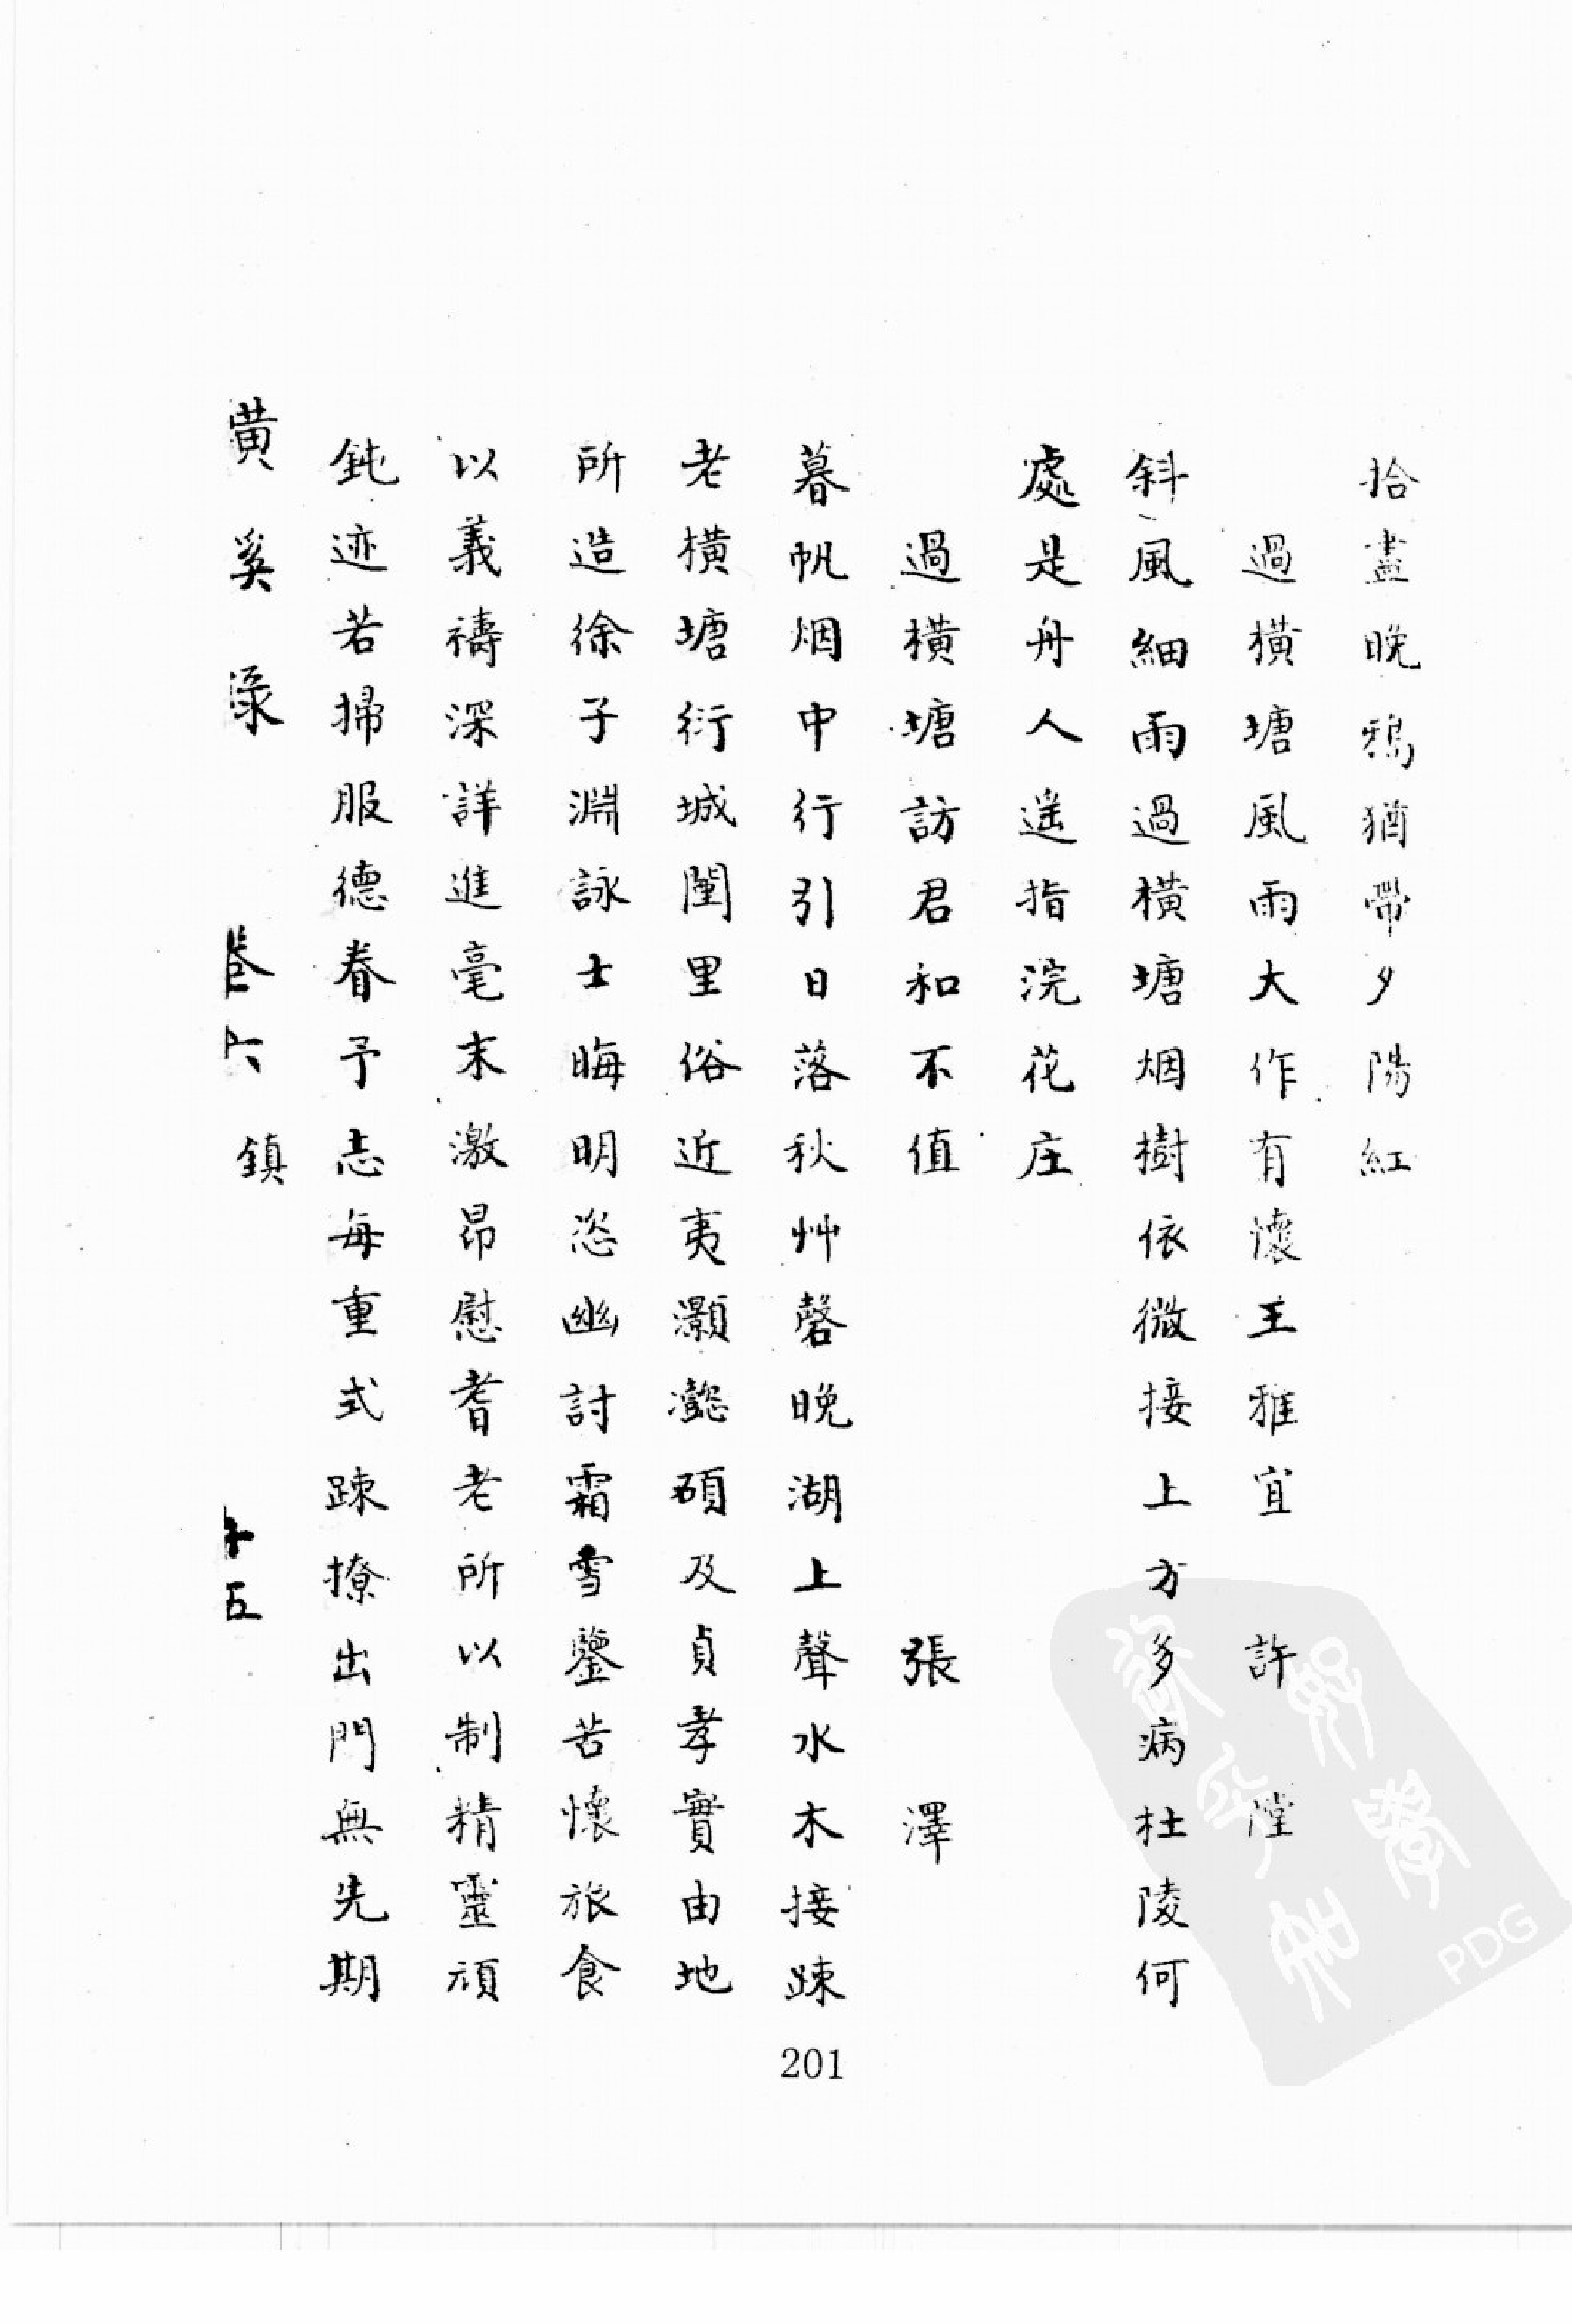 拾盡晚鴉猶帶夕陽紅
過橫塘風雨大作有懷王雅宜　許陞
斜風細雨過橫塘烟樹依微接上方多病杜陵何
處是舟人遥指浣花庄
過橫塘訪君和不值　張澤
暮帆烟中行行引日落秋艸磬晚湖上聲水木接踈
老橫塘衍城闉里俗近夷灝懿碩及貞孝實由地
所造徐子淵詠士晦明恣幽討霜雪鑒苦懷旅食
以義禱深詳進毫末激昂慰耆老所以制精靈頑
鈍迹若掃服德眷予志每重式踈撩出門無先期
黄溪录　卷六　鎮　十五
201
PDG